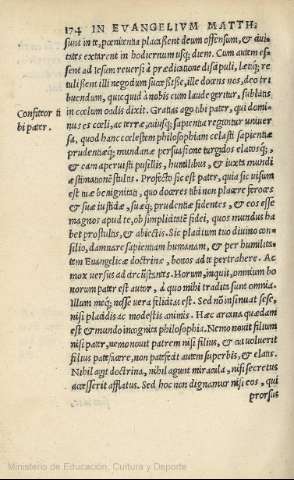 174 IN EVANGELIVM MATTH:
sunt in te, pœnitentia placassent deum offensum, & ciui-
tates extarent in hodiernum usq; diem. Cum autem es-
sent ad Iesum reuersi à prædicatione discipuli, lætiq; re-
tulissent illi negotium successisse, ille docens nos, deo tri
buendum, quicquid à nobis cum laude geritur, sublatis
Confiteor ti in cœlum oculis dixit. Gratias ago tibi pater, qui domi-
bi pater. nus es cœli, ac terræ, cuiusq; sapientia regitur univer
sa, quod hanc cœlestem philosophiam celasti sapientiæ
prudentiæq; mundanæ persuasione turgidos elatosq;,
& eam aperuisti pusillis, humilibus, & iuxta mundi
æstimationē stultis. Profecto sic est pater, quia sic uisum
est tuæ benignitati, quo doceres tibi non placere feroces
& sua iustitia, suæq; prudentiæ fidentes, & eos esse
magnos apud te, ob simplicitatē fidei, quos mundus ha
bet pro stultis, & abiectis. Sic placitum tuo diuino con-
silio, damnare sapientiam humanam, & per humilita-
tem Euangelicæ doctrinæ, bonos ad te pertrahere. Ac
mox uersus ad circūstantes. Horum, inquit, omnium bo
norum pater est autor, à quo mihi tradita sunt omnia.
Illum meq; nosse uera fœlicitas est. Sed nō insinuat sese,
nisi placidis ac modestis animis. Hæc arcana quædam
est & mundo incognita philosophia. Nemo nouit filium
nisi pater, nemo nouit patrem nisi filius, & cui uoluerit
filius patefacere, non patefiat autem superbis, & elatis.
Nihil agit doctrina, nihil agunt miracula, nisi secretus
accesserit afflatus. Sed hoc non dignantur nisi eos, qui
prorsus
Ministerio de Educación, Cultura y Deporte